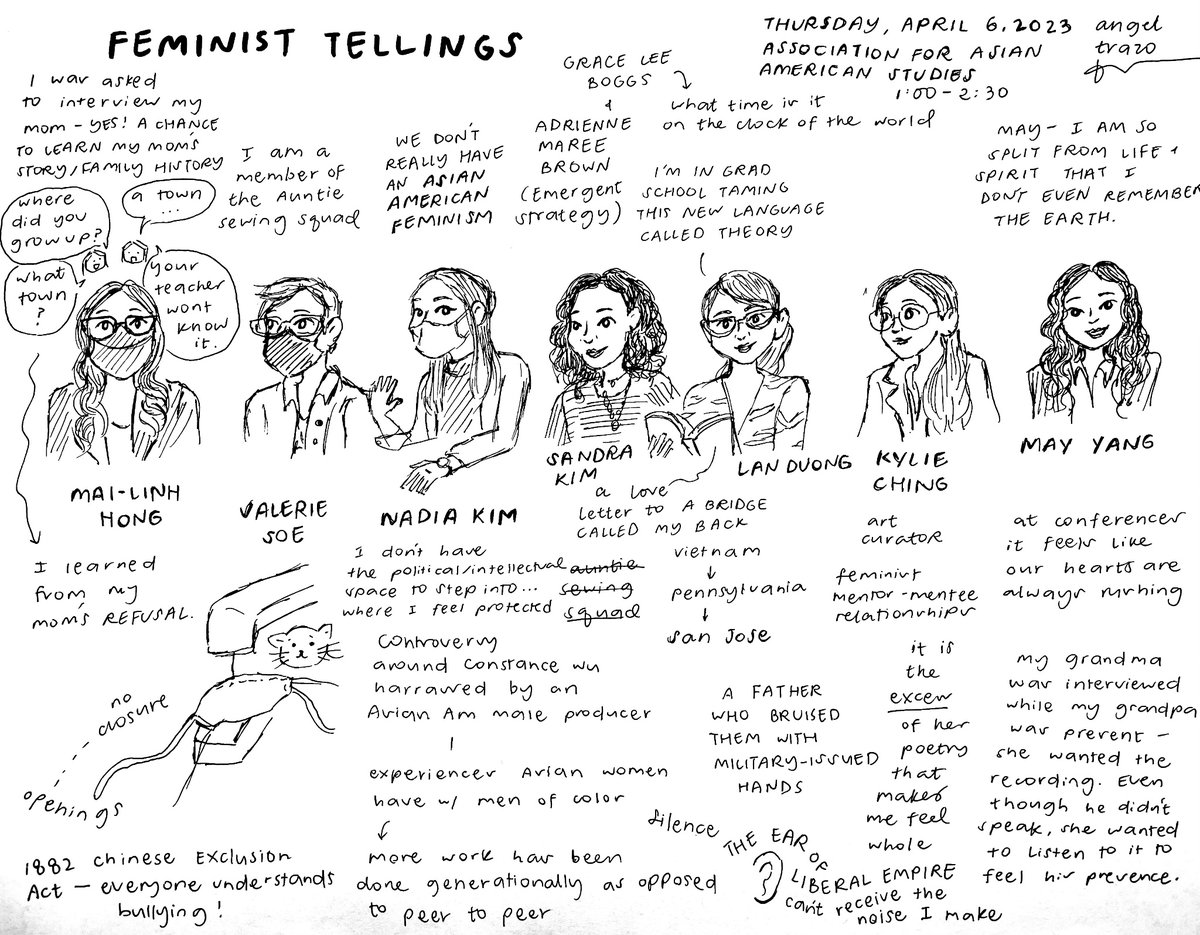 FEMINIST TELLINGS
THURSDAY, APRIL 6, 2023
ASSOCIATION FOR ASIAN
AMERICAN STUDIES
1:00 - 2:30
angel
trazo
I was asked
to interview my
mom - YES! A CHANCE
TO LEARN MY MOM'S
STORY/FAMILY HISTORY
where
did you
grow up?
a town
...
what
town
?
your
teacher
wont
know
it.
MAI-LINH
HONG
I learned
from my
mom's REFUSAL.
no
closure
openings
1882 Chinese Exclusion
Act - everyone understands
bullying!
I am a
member of
the Auntie
sewing squad
VALERIE
SOE
WE DON'T
REALLY HAVE
AN ASIAN
AMERICAN
FEMINISM
NADIA KIM
I don't have
the political/intellectual
space to step into...
where I feel protected
auntie
sewing
squad
Controversy
around Constance wu
harrassed by an
Asian Am male producer
experiences Asian women
have w/ men of color
more work has been
done generationally as opposed
to peer to peer
GRACE LEE
BOGGS
&
ADRIENNE
MAREE
BROWN
(Emergent
strategy)
what time is it
on the clock of the world
SANDRA
KIM
I'M IN GRAD
SCHOOL TAMING
THIS NEW LANGUAGE
CALLED THEORY
LAN DUONG
a love
letter to A BRIDGE
CALLED MY BACK
vietnam
↓
pennsylvania
↓
San Jose
A FATHER
WHO BRUISED
THEM WITH
MILITARY-ISSUED
HANDS
silence
THE EAR OF
LIBERAL EMPIRE
can't receive the
noise I make
KYLIE
CHING
art
curator
feminist
mentor-mentee
relationships
it is
the
excess
of her
poetry
that
makes
me feel
whole
MAY - I AM SO
SPLIT FROM LIFE +
SPIRIT THAT I
DON'T EVEN REMEMBER
THE EARTH.
MAY YANG
at conferences
it feels like
our hearts are
always rushing
my grandma
was interviewed
while my grandpa
was present -
she wanted the
recording. Even
though he didn't
speak, she wanted
to listen to it to
feel his presence.